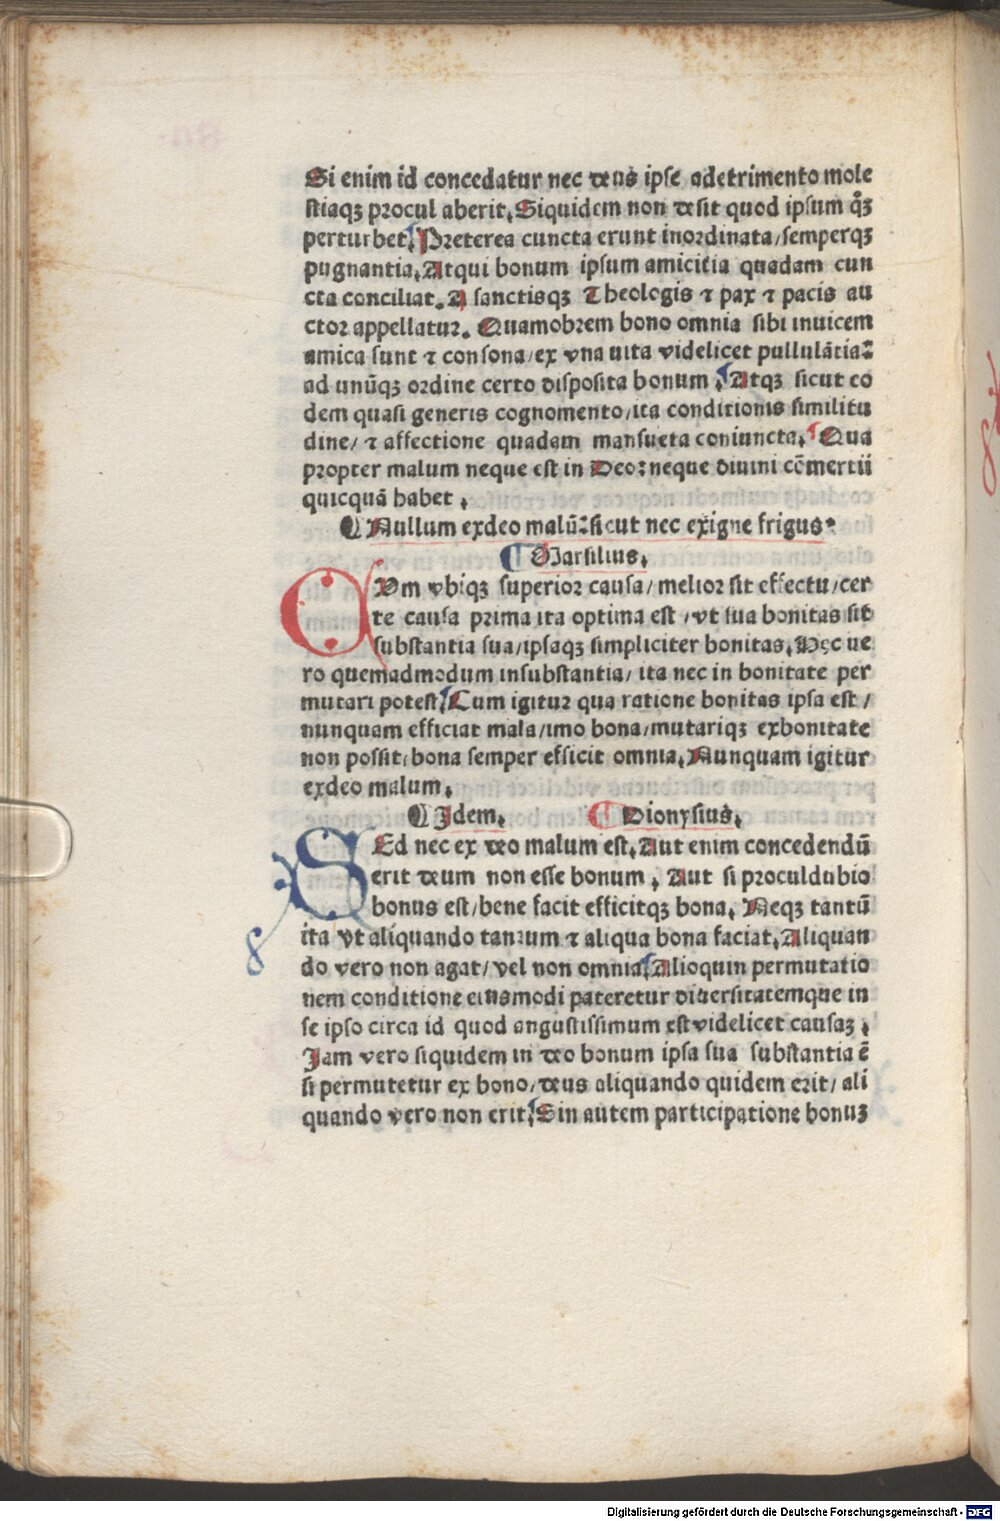 Si enim id concedatur nec deus ipse adetrimento mole
stiaqꝫ procul aberit. Siquidem non desit quod ipsum q̃ꝫ
perturbet. Preterea cuncta erunt inordinata/semperqꝫ
pugnantia. Atqui bonum ipsum amicitia quadam cun
cta conciliat. A sanctisqꝫ Theologis ⁊ pax ⁊ pacis au
ctor appellatur. Quamobrem bono omnia sibi inuicem
amica sunt ⁊ consona/ex vna uita videlicet pullulātia:
ad unūqꝫ ordine certo disposita bonum. Atqꝫ sicut eo
dem quasi generis cognomento/ita conditionis similitu
dine/ ⁊ affectione quadam mansueta coniuncta. Qua
propter malum neque est in Deo: neque diuini cōmertii
quicquā habet.
¶ Nullum exdeo malū: sicut nec exigne frigus.
¶ Marsilius.
CVm vbiqꝫ superior causa/ melior sit effectu/cer
te causa prima ita optima est /vt sua bonitas sit
substantia sua/ipsaqꝫ simpliciter bonitas. Hęc ue
ro quemadmodum insubstantia/ ita nec in bonitate per
mutari potest. Cum igitur qua ratione bonitas ipsa est /
nunquam efficiat mala/imo bona/mutariqꝫ exbonitate
non possit: bona semper efficit omnia. Nunquam igitur
exdeo malum.
¶ Idem. ¶ Dionysius.
SEd nec ex deo malum est. Aut enim concedendū
erit deum non esse bonum. Aut si proculdubio
bonus est/bene facit efficitqꝫ bona. Neqꝫ tantū
ita vt aliquando tantum ⁊ aliqua bona faciat. Aliquan
do vero non agat/ vel non omnia. Alioquin permutatio
nem conditione eiusmodi pateretur diuersitatemque in
se ipso circa id quod angustissimum est videlicet causaꝫ.
Jam vero siquidem in deo bonum ipsa sua substantia ē
si permutetur ex bono/deus aliquando quidem erit/ ali
quando vero non erit. Sin autem participatione bonuꝫ
Digitalisierung gefördert durch die Deutsche Forschungsgemeinschaft - DFG